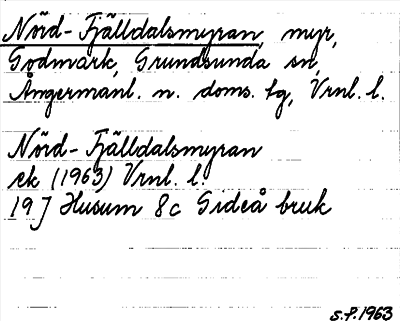 Nörd-Fjälldalsmyran, myr,
Godmark, Grundsunda sn,
Ångermanl. n. doms. tg, Vrnl. l.
Nörd-Fjälldalsmyran
ek (1963) Vrnl. l.
19 J Husum 8c Gideå bruk
S.P. 1963